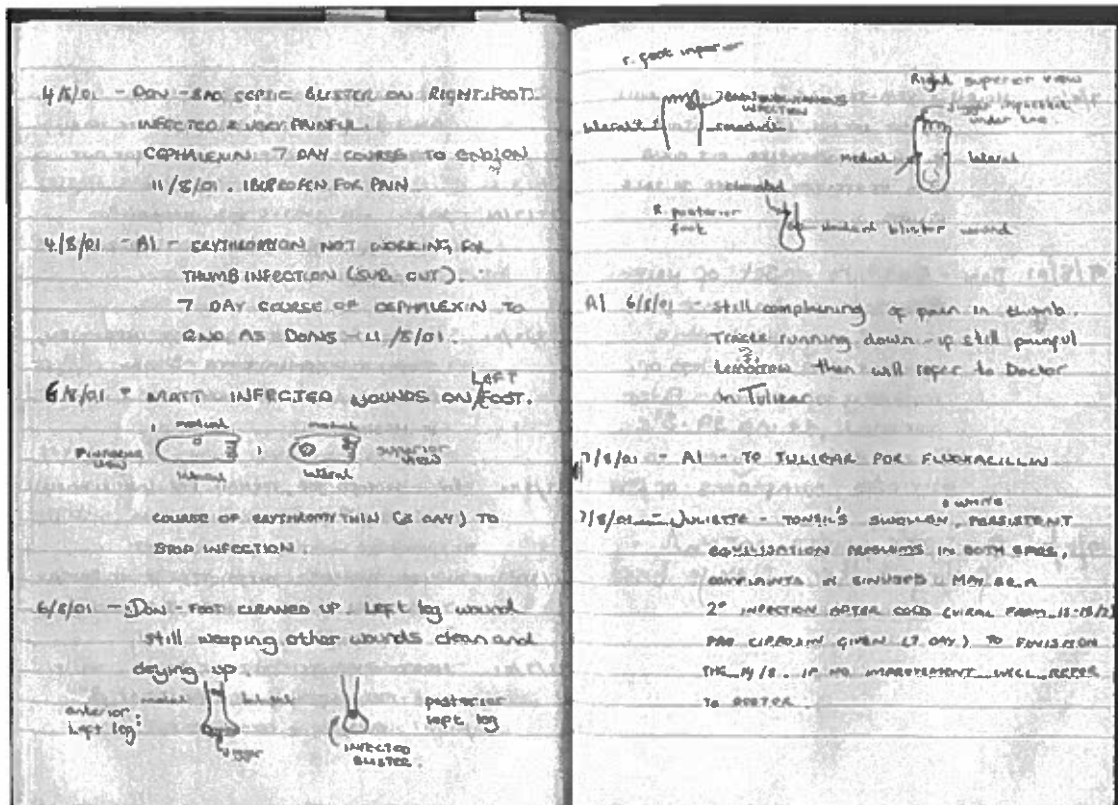 4/8/01 - DON - BAD SEPTIC BLISTER ON RIGHT FOOT.
INFECTED & VERY PAINFUL.
CEPHALEXIN 7 DAY COURSE TO END ON
11/8/01. IBUPROFEN FOR PAIN
4/8/01 - Al - ERYTHROMYCIN NOT WORKING FOR
THUMB INFECTION (SUB CUT).
7 DAY COURSE OF CEPHALEXIN TO
END AS DONS - 11/8/01.
LEFT
6/8/01 - MATT INFECTED WOUNDS ON FOOT.
medial medial
VIEW superior VIEW
lateral lateral
COURSE OF ERYTHROMYTHIN (3 DAY) TO
STOP INFECTION.
6/8/01 - DON - FOOT CLEANED UP. Left leg wound
still weeping other wounds clean and
drying up.
medial lateral
anterior left leg:
posterior left leg
jigger
INFECTED BLISTER.
r. foot
INFECTION
lateral
Right superior view
jigger
under toe
medial lateral
R posterior foot
blister wound
Al 6/8/01 - still complaining of pain in thumb.
Tracks running down - if still painful
then will refer to Doctor
in Tulear
7/8/01 - Al - TO TULEAR FOR FLUOXACILLIN
WHITE
7/8/01 - JULIETTE - TONSIL'S SWOLLEN, PERSISTENT
EQUILISATION PROBLEMS IN BOTH EARS,
COMPLAINTS IN SINUSES MAY BE A
2° INFECTION AFTER COLD (VIRAL FROM
GIVEN (7 DAY) TO FINISH ON
THE 14/8. IF NO IMPROVEMENT WILL REFER
TO DOCTOR.